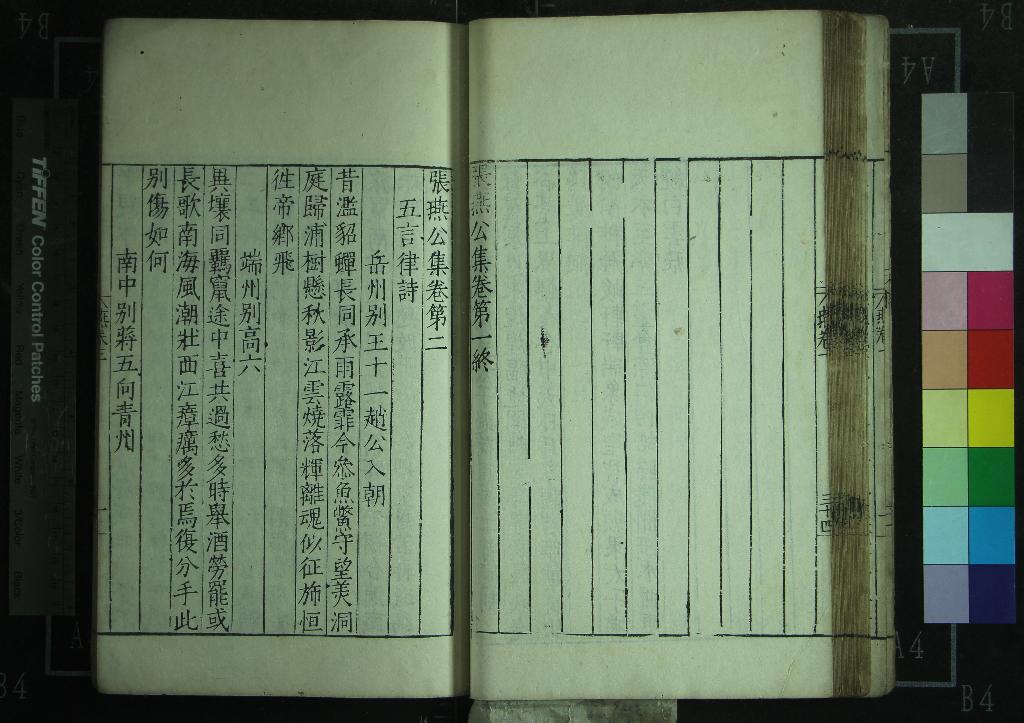 張燕公集卷第一終
張燕公集卷第二
五言律詩
岳州别王十一趙公入朝
昔濫貂蟬長同承雨露霏今叅魚鱉守望美洞
庭歸浦樹懸秋影江雲燒落輝離魂似征斾恒
徃帝鄉飛
端州别高六
異壤同羈竄途中喜共過愁多時舉酒勞罷或
長歌南海風潮壯西江瘴癘多於焉復分手此
别傷如何
南中别蔣五向青州
三十四
TIFFEN Color Control Patches
B4
A4
B4
A4
B4